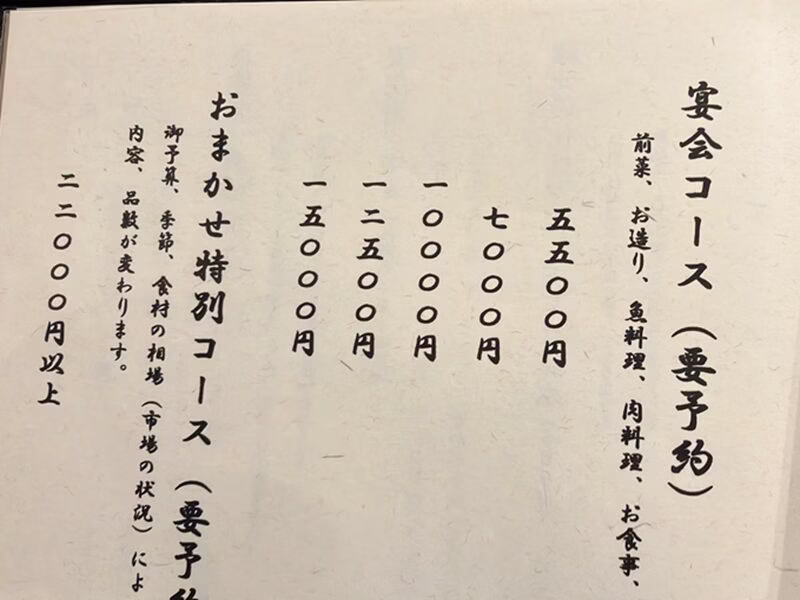 宴会コース（要予約）
前菜、お造り、魚料理、肉料理、お食事、
五五〇〇円
七〇〇〇円
一〇〇〇〇円
一二五〇〇円
一五〇〇〇円
おまかせ特別コース（要予約
御予算、季節、食材の相場（市場の状況）によ
内容、品数が変わります。
二二〇〇〇円以上